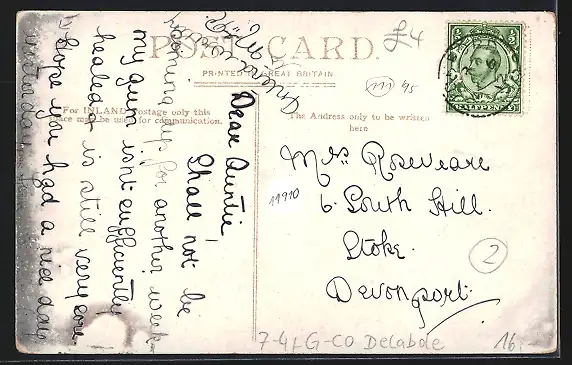 POST CARD.
PRINTED IN GREAT BRITAIN
For INLAND Postage only this
space may be used for communication.
The Address only to be written
here
Dear Auntie,
Shall not be
coming up for another week
my gum isnt sufficiently
healed & is still very sore.
hope you had a nice day
£4
HALFPENNY
m 45
11910
Mrs Roseveare
6. South Hill.
Stoke.
Devonport.
2
7-4 f G-CO Delabole
16.